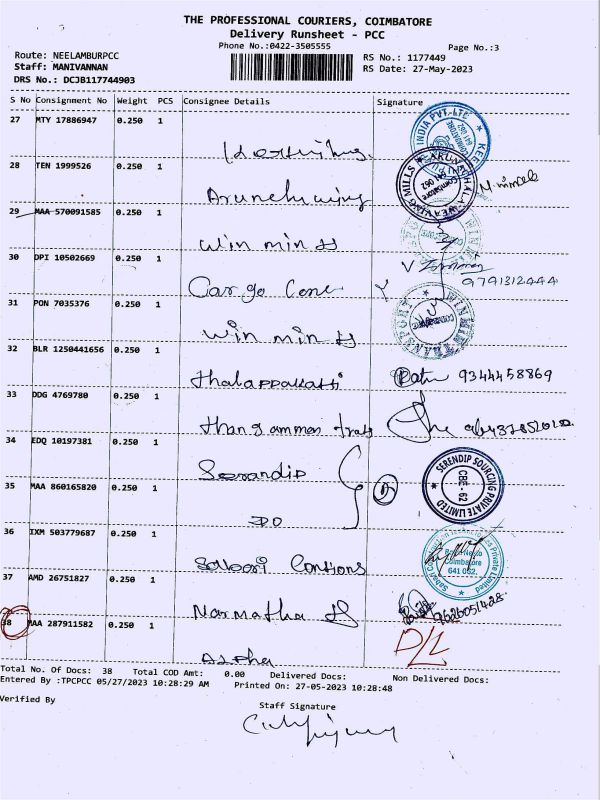 THE PROFESSIONAL COURIERS, COIMBATORE
Delivery Runsheet - PCC
Phone No.:0422-3505555
Page No.:3
Route: NEELAMBURPCC
RS No.: 1177449
Staff: MANIVANNAN
RS Date: 27-May-2023
DRS No.: DCJB117744903
S No Consignment No Weight PCS Consignee Details Signature
27 MTY 17886947 0.250 1
INDIA PVT. LTD
28 TEN 1999526 0.250 1
WEAVING MILLS
29 MAA 570091585 0.250 1
Win min
30 DPI 10502669 0.250 1
9791312444
Cargo Cone
31 PON 7035376 0.250 1
Win min
WINMIN TRANSPORT
32 BLR 1250441656 0.250 1
Thalappakatti
9344458869
33 DDG 4769780 0.250 1
34 EDQ 10197381 0.250 1
Serandip
SERENDIP SOURCING PRIVATE LIMITED
CBE - 62
35 MAA 860165820 0.250 1
DO
36 IXM 503779687 0.250 1
Coimbatore
641 062
37 AMD 26751827 0.250 1
Narmatha
9626051428
38 MAA 287911582 0.250 1
D/L
Total No. Of Docs: 38 Total COD Amt: 0.00 Delivered Docs: Non Delivered Docs:
Entered By :TPCPCC 05/27/2023 10:28:29 AM Printed On: 27-05-2023 10:28:48
Verified By
Staff Signature